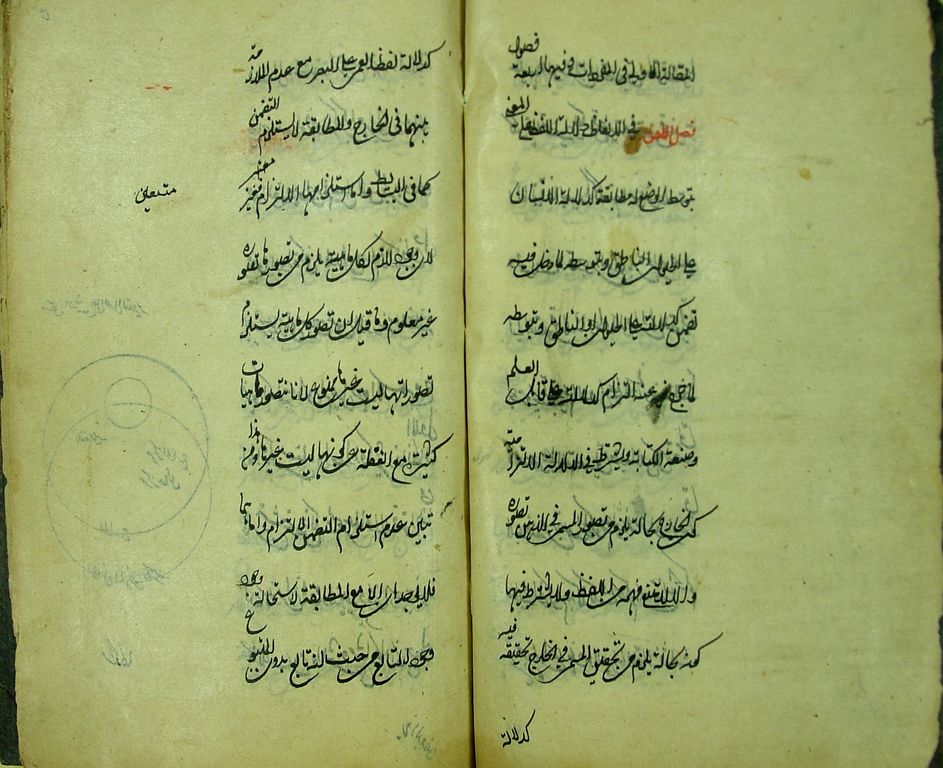 المقالة الاولى فى المفردات وفيها اربعة فصول
فصل الاول فى الالفاظ دلالة اللفظ على المعنى
بتوسط الوضع له مطابقة كدلالة الانسان
على الحيوان الناطق وبتوسطه لما دخل فيه
تضمن كدلالته على الحيوان او الناطق وبتوسطه
لما خرج عنه التزام كدلالته على قابل العلم
وصنعة الكتابة ويشترط فى الدلالة الالتزامية
كون الخارجى بحالة يلزم من تصور المسمى فى الذهن تصوره
والا لامتنع فهمه من اللفظ ولا يشترط فيها
كونه بحالة يلزم من تحقق المسمى فى الخارج تحققه فيه
كدلالة
كدلالة لفظ العمى على البصر مع عدم الملازمة
بينهما فى الخارج والمطابقة لا يستلزم التضمن
كما فى البسائط واما استلزامها الالتزام فغير
لان وجود لازم لكل ماهية يلزم من تصورها تصوره
غير معلوم وما قيل ان تصور كل ماهية يستلزم
تصور انها ليست غيرها ممنوع لانا نتصور ماهيات
كثيرة مع الغفلة عن كونها ليست غيرها ومن هذا
تبين عدم استلزام التضمن الالتزام واما هما
فلا يوجدان الا مع المطابقة لاستحالة وجود
التابع من حيث انه تابع بدون المتبوع